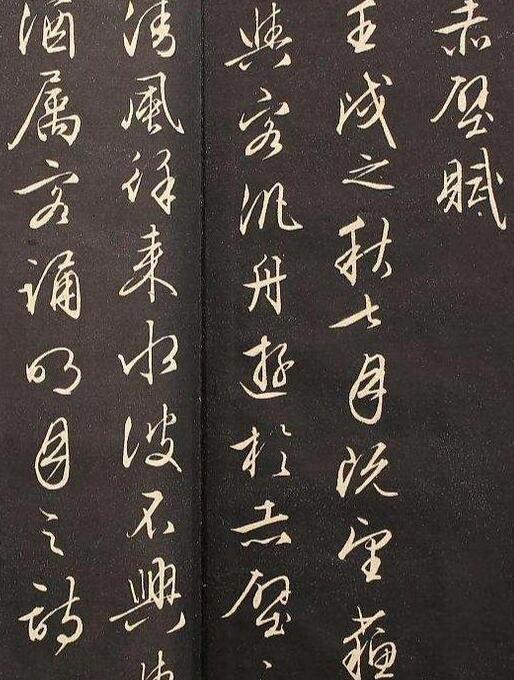 赤壁賦
壬戌之秋七月既望蘇
與客汎舟遊於赤壁
清風徐来水波不興
酒属客誦明月之詩